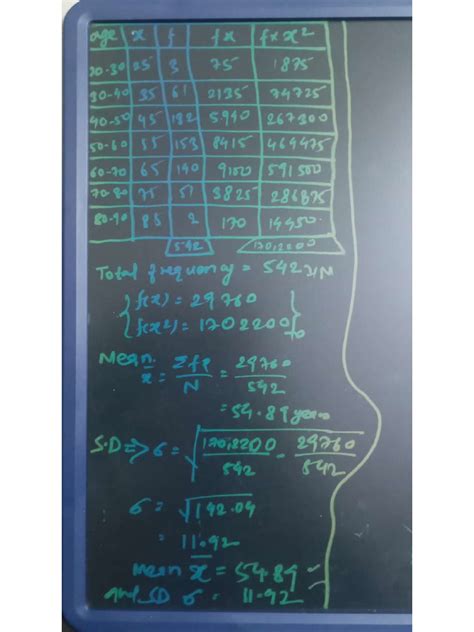 age x f fx f×x²
20-30 25 3 75 1875
30-40 35 61 2135 74725
40-50 45 132 5940 267300
50-60 55 153 8415 464475
60-70 65 140 9100 591500
70-80 75 51 3825 286875
80-90 85 2 170 14450
542 1702200
Total frequency = 542
f(x) = 29760
f(x²) = 1702200
Mean
x̄ = Σfx/N = 29760/542
= 54.89 years
S.D => σ = √1702200/542 - 29760/542
σ = √142.04
= 11.92
mean x̄ = 54.89
and SD σ = 11.92